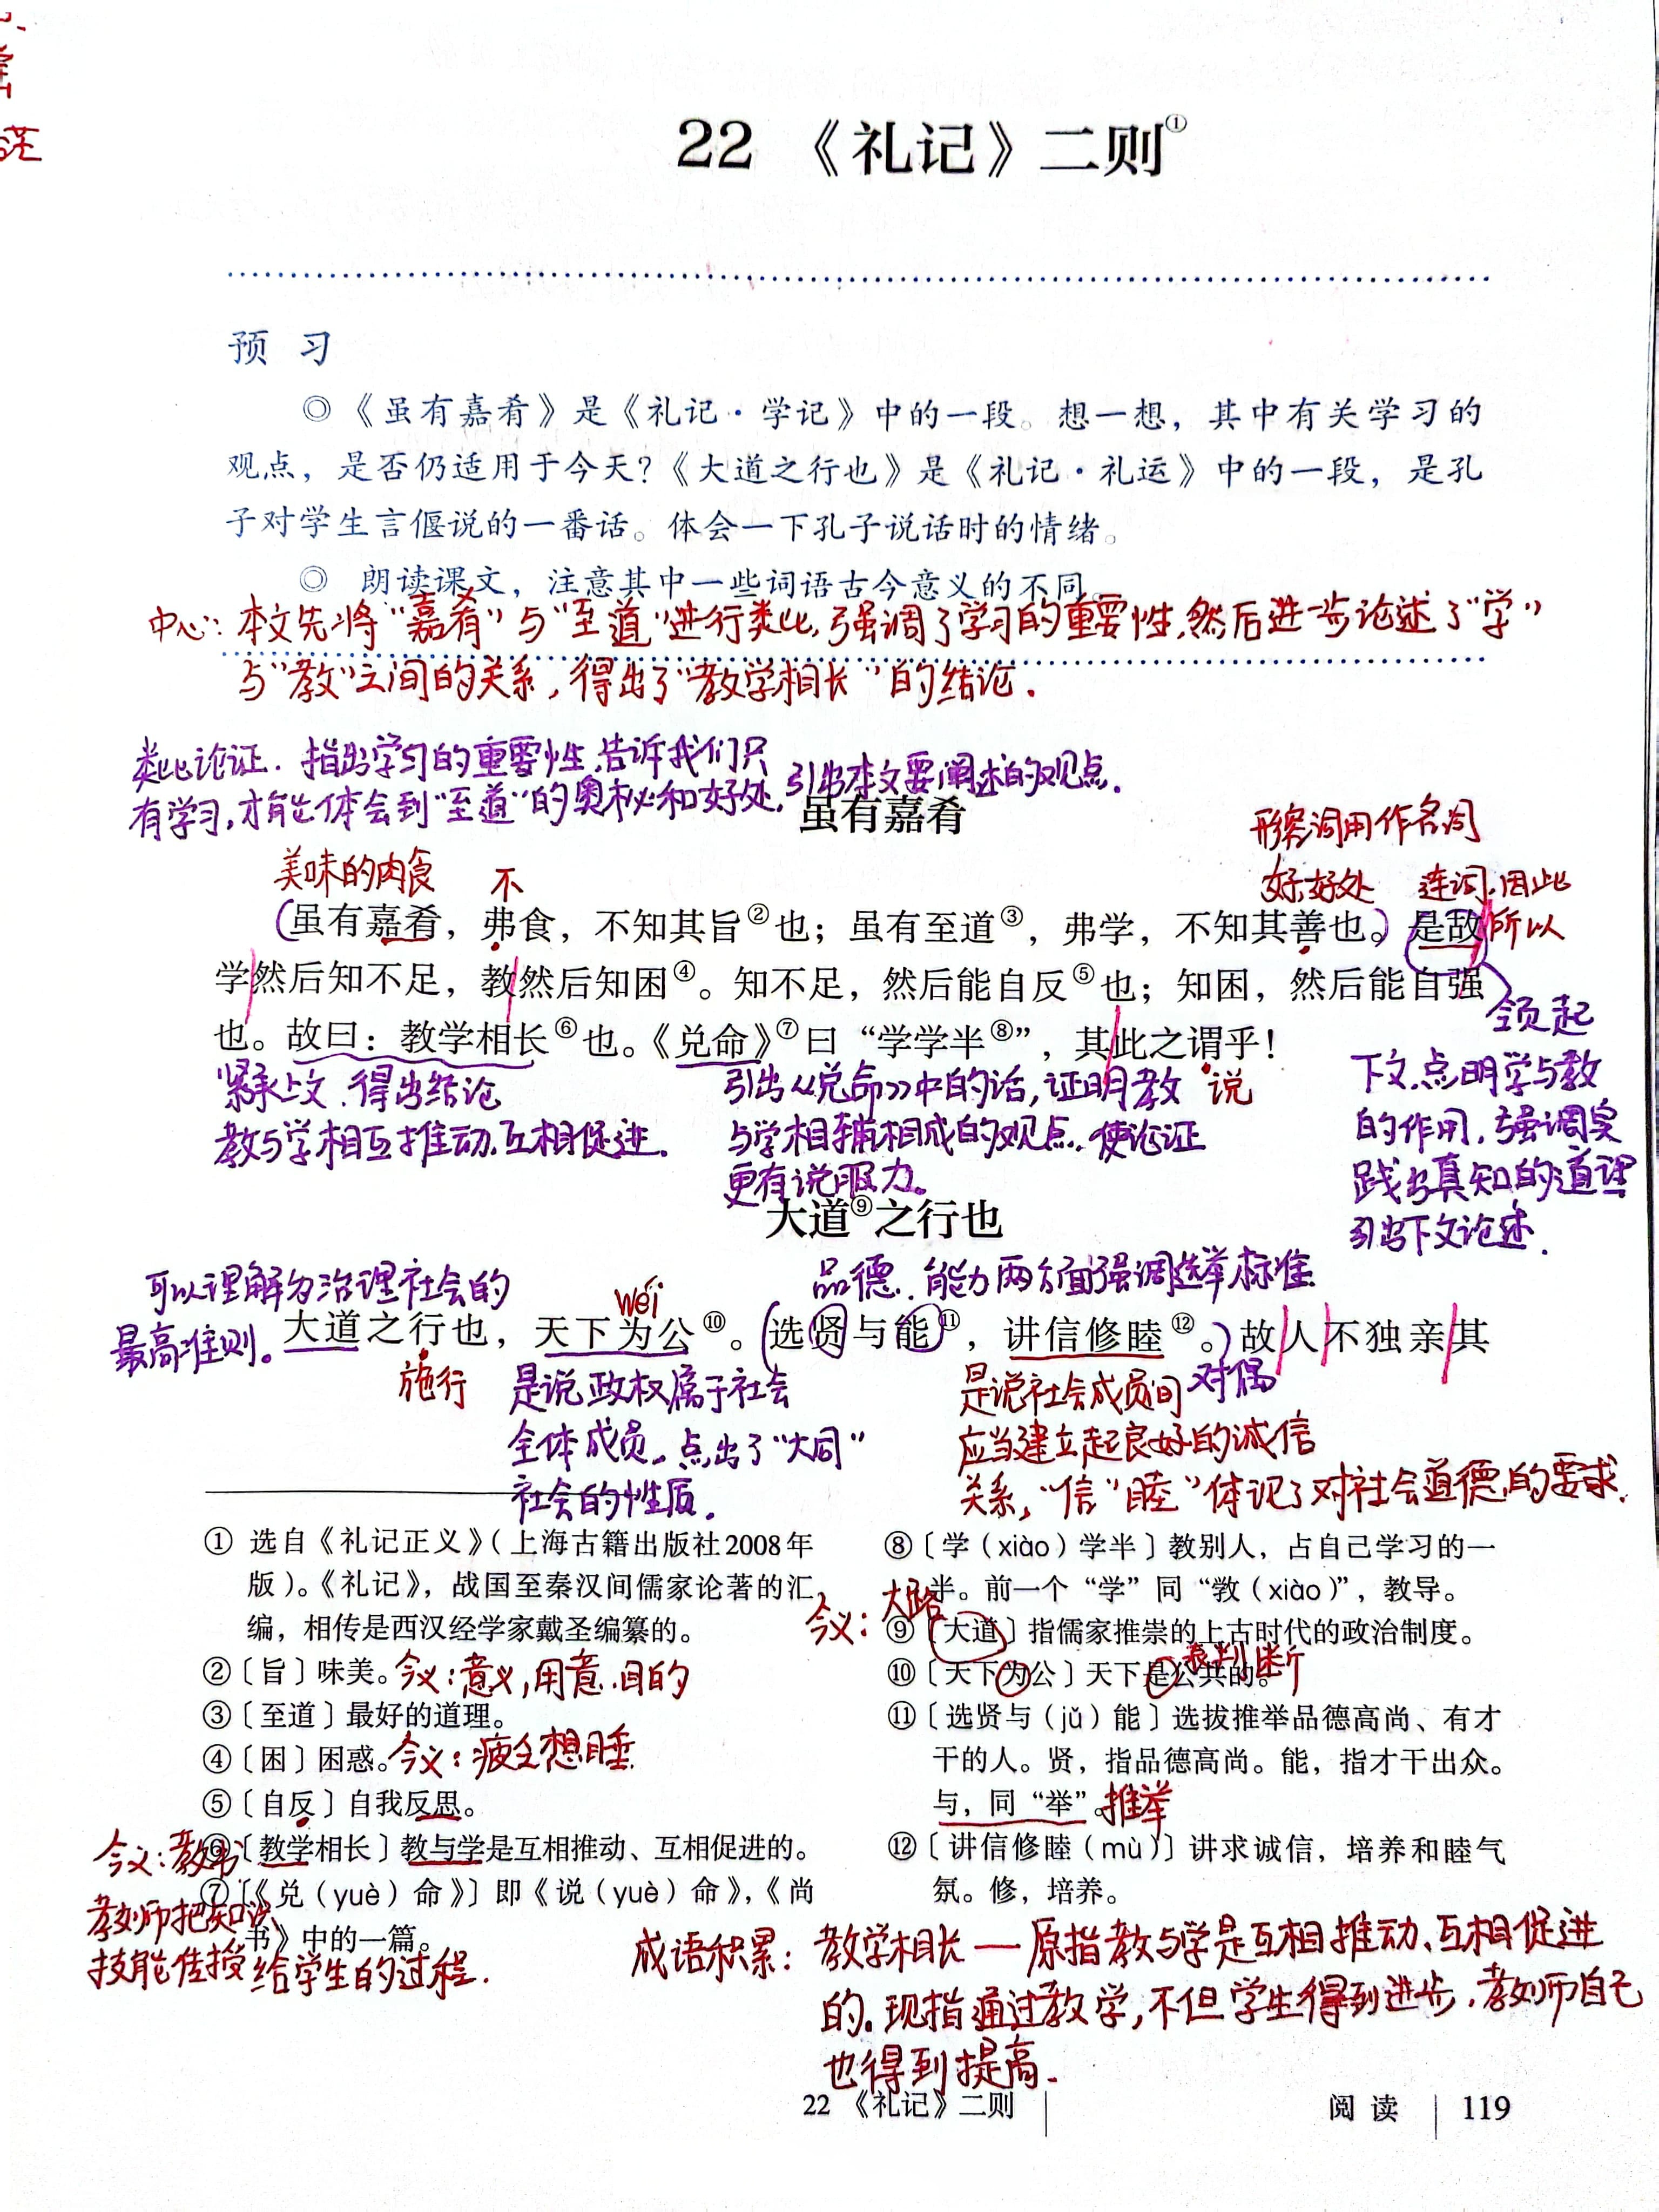 22 《礼记》二则①
预 习
◎《虽有嘉肴》是《礼记·学记》中的一段。想一想，其中有关学习的
观点，是否仍适用于今天？《大道之行也》是《礼记·礼运》中的一段，是孔
子对学生言偃说的一番话。体会一下孔子说话时的情绪。
◎ 朗读课文，注意其中一些词语古今意义的不同。
中心：本文先将“嘉肴”与“至道”进行类比，强调了学习的重要性，然后进一步论述了“学”
与“教”之间的关系，得出了“教学相长”的结论.
类比论证. 指出学习的重要性,告诉我们只
有学习,才能体会到“至道”的奥秘和好处,引出本文要阐述的观点.
虽有嘉肴
形容词用作名词
美味的肉食 不 好,好处 连词,因此
（虽有嘉肴，弗食，不知其旨②也；虽有至道③，弗学，不知其善也。）是故 所以
学然后知不足，教然后知困④。知不足，然后能自反⑤也；知困，然后能自强
也。故曰：教学相长⑥也。《兑命》⑦曰“学学半⑧”，其此之谓乎！
领起
下文.点明学与教
的作用,强调实
践出真知的道理
引出下文论述.
紧承上文.得出结论
教与学相互推动.互相促进.
引出《兑命》中的话,证明教 说
与学相辅相成的观点.使论证
更有说服力.
大道⑨之行也
可以理解为治理社会的
最高准则。
wéi 品德.能力两方面强调选举标准
大道之行也，天下为公⑩。（选贤与能⑪，讲信修睦⑫。）故人不独亲其
施行
是说政权属于社会
全体成员.点出了“大同”
社会的性质.
对偶
是说社会成员间
应当建立起良好的诚信
关系,“信”“睦”体记了对社会道德的要求.
① 选自《礼记正义》（上海古籍出版社2008年
版）。《礼记》，战国至秦汉间儒家论著的汇
编，相传是西汉经学家戴圣编纂的。
②〔旨〕味美。今义:意义,用意.目的
③〔至道〕最好的道理。
④〔困〕困惑。今义:疲乏想睡
⑤〔自反〕自我反思。
⑥〔教学相长〕教与学是互相推动、互相促进的。
⑦〔《兑（yuè）命》〕即《说（yuè）命》，《尚
书》中的一篇。
今义:教书.
教师把知识
技能传授给学生的过程.
⑧〔学（xiào）学半〕教别人，占自己学习的一
半。前一个“学”同“敩（xiào）”，教导。
今义: 大路
⑨〔大道〕指儒家推崇的上古时代的政治制度。
⑩〔天下为公〕天下是公共的。表判断
⑪〔选贤与（jǔ）能〕选拔推举品德高尚、有才
干的人。贤，指品德高尚。能，指才干出众。
与，同“举”。推举
⑫〔讲信修睦（mù）〕讲求诚信，培养和睦气
氛。修，培养。
成语积累: 教学相长—原指教与学是互相推动、互相促进
的.现指通过教学,不但学生得到进步,教师自己
也得到提高.
22 《礼记》二则
阅 读 119